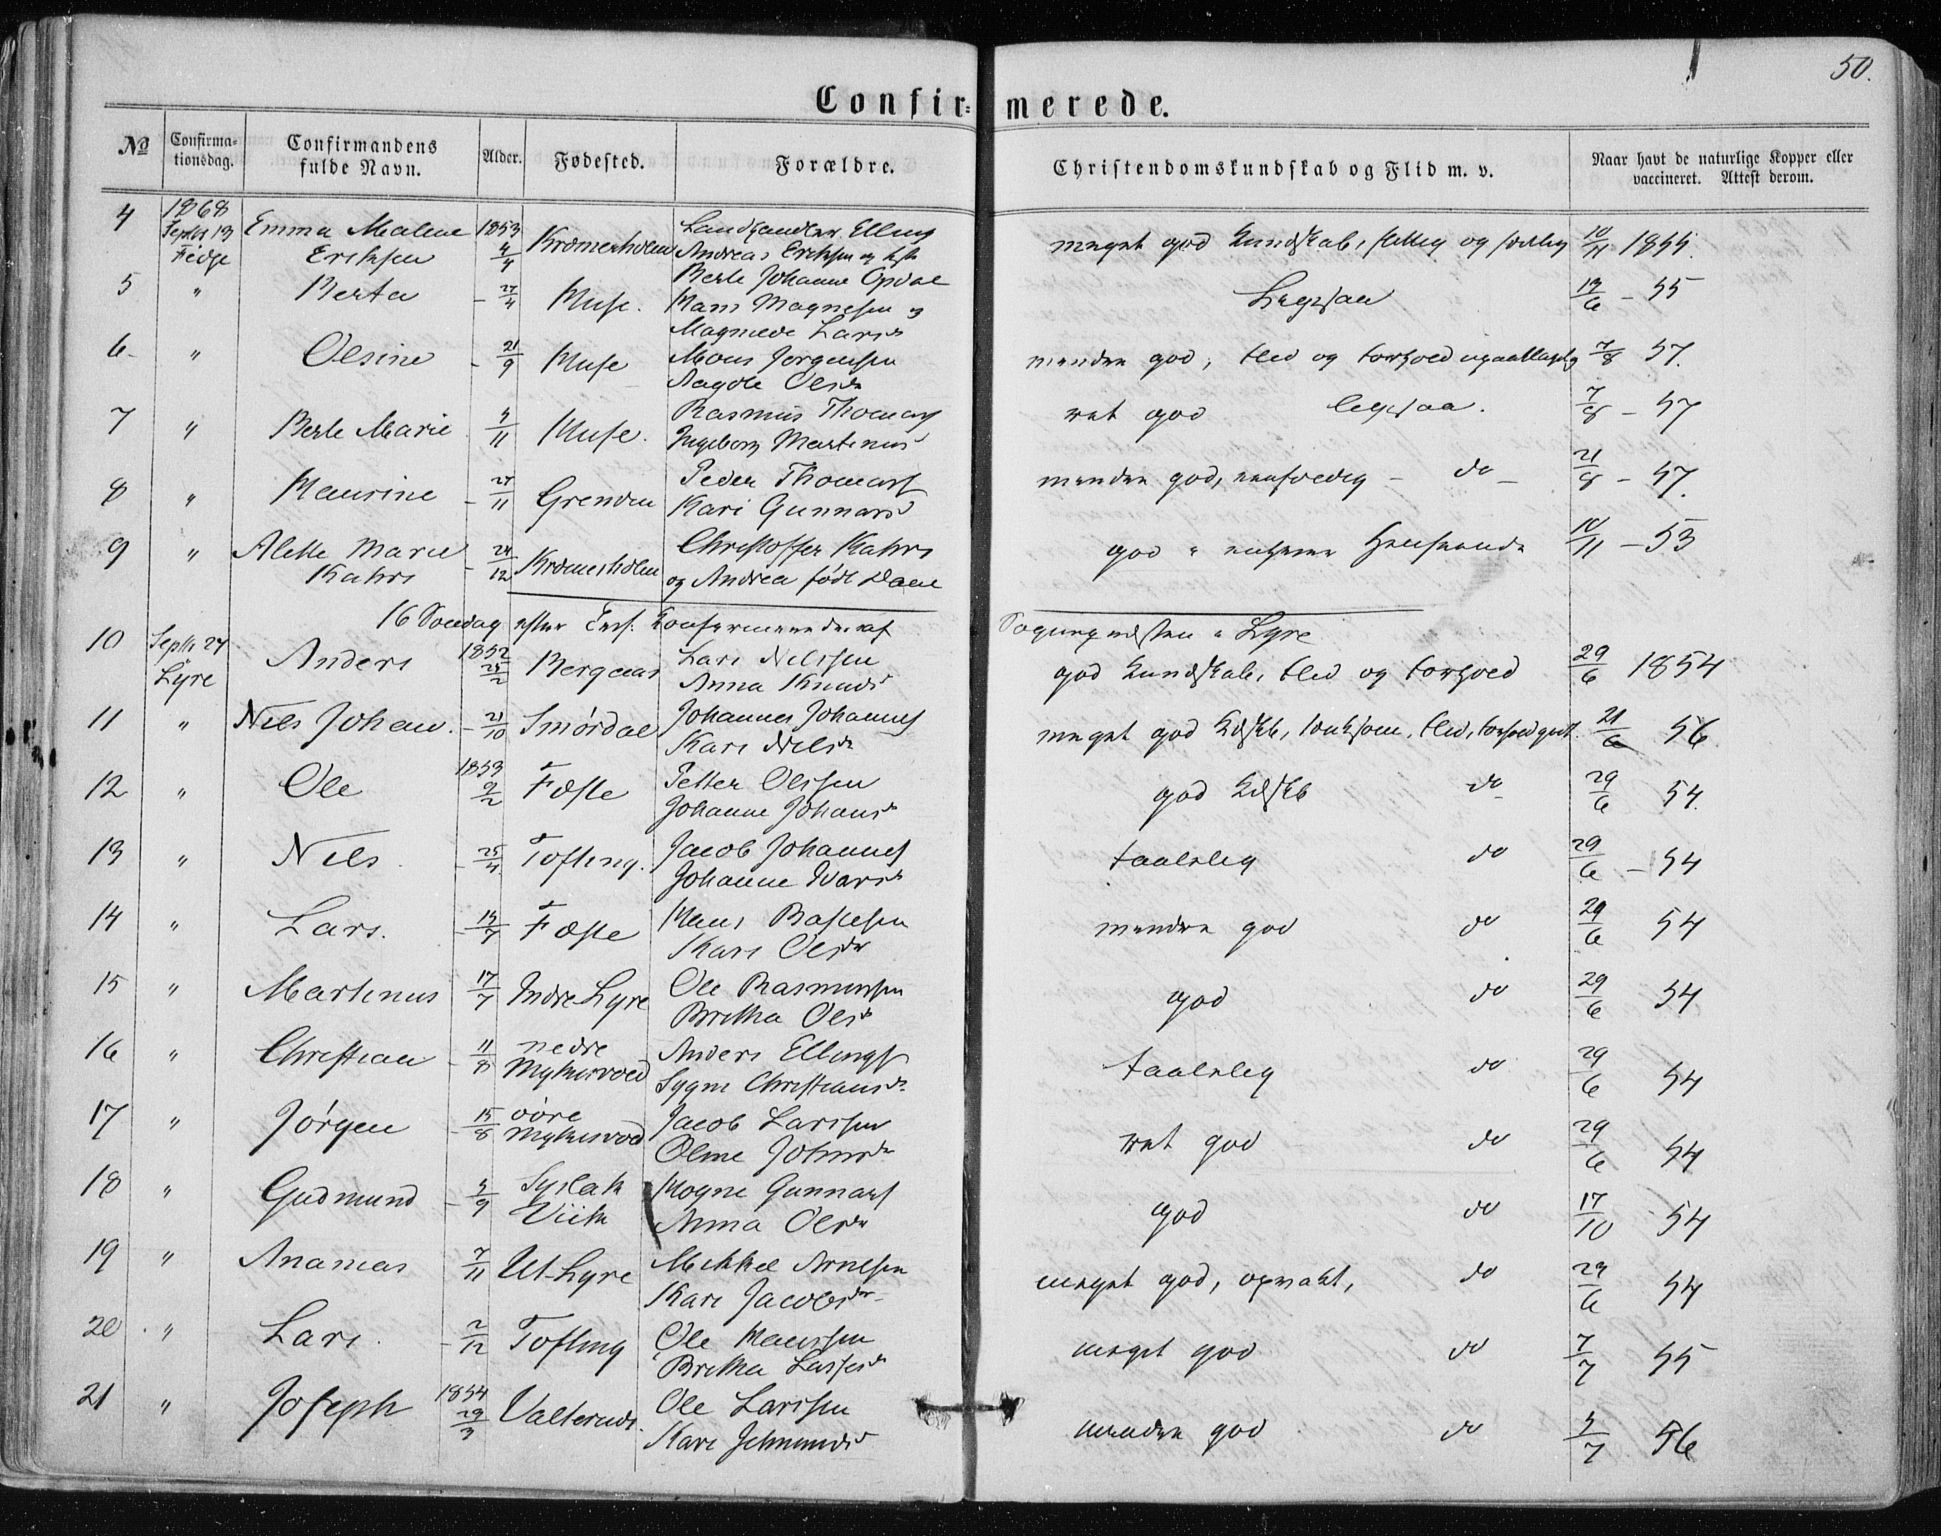 50.
Confir= merede.
№ Confirma-tionsdag. Confirmandens fulde Navn. Alder. Fødested. Forældre. Christendomskundskab og Flid m. v. Naar havt de naturlige Kopper eller vaccineret. Attest derom.
4 1868 Septb 13 Fedje Emma Malene Eriksen 1853 4/4 Kræmerholm Landhandler Elling Andreas Eriksen og meget god Kundskab, flittig og 10/11 1855.
Berte Johanne Opdal
5 " Berta - 27/4 Muse. Hans Magnesen og Magnilde Larsd. Ligesaa 19/6 - 55
6 " Olsine - 21/9 Muse Mons Jørgensen Aagote Olsdr mindre god, Flid og Forhold 7/8 57.
7 " Berte Marie 4/11 Muse. Rasmus Thomas Ingeborg Martinusd ret god ligesaa. 7/8 - 57
8 " Maurine - 27/11 Grenden Peder Thomass Kari Gunnarsd mindre god, - do - 21/8 - 57.
9 " Alette Marie Kahrs - 24/12 Kræmerholm Christoffer Kahrs og Andrea født Dane god i enhver Henseende 10/11 - 53
16 Søndag efter Conf. Sognepresten i Lyre
10 Septb 27 Lyre Anders 1852 25/2 Bergaas Lars Nilssen Anna Knudsd god Kundskab, Flid og Forhold 29/6 1854
11 " Nils Johan. - 21/10 Smørdal Johannes Johannes Kari Nilsdr meget god Kdskb, Flid, 21/6 56
12 " Ole 1853 9/2 Fæste Petter Olssen Johanne Johansdr god Kdskb do 29/6 54.
13 " Nils. - 25/4 Tofting. Jacob Johannes Johanne Ivarsdr taalelig do 29/6 - 54
14 " Lars. - 14/7 Fæste Hans Kari Olsdr mindre god do 29/6 54
15 " Martinus 17/7 Indre Lyre Ole Rasmussen Brittha Olsdr god do 29/6 54
16 " Christian - 11/8 nedre Myksvold Anders Ellings Sygni Christiansdr. taalelig do 29/6 54
17 " Jørgen - 15/8 øvre Myksvold Jacob Larssen Oline Johnsdr. ret god do 29/6 54
18 " Gudmund - 4/9 Syslak Viik Mogne Gunnars Anna Olsdr god do 17/10 54
19 " Ananias 7/11 Ut-Lyre Mikkel Arnesen Kari Jacobsdr meget god, opvakt, do 29/6 54
20 " Lars. - 2/12 Tofting Ole Hanssen Brittha Lassesdr meget god do 7/7 55
21 " Joseph 1854 29/3 Valternds. Ole Larssen Kari Jetmundsd mindre god do 4/7 56